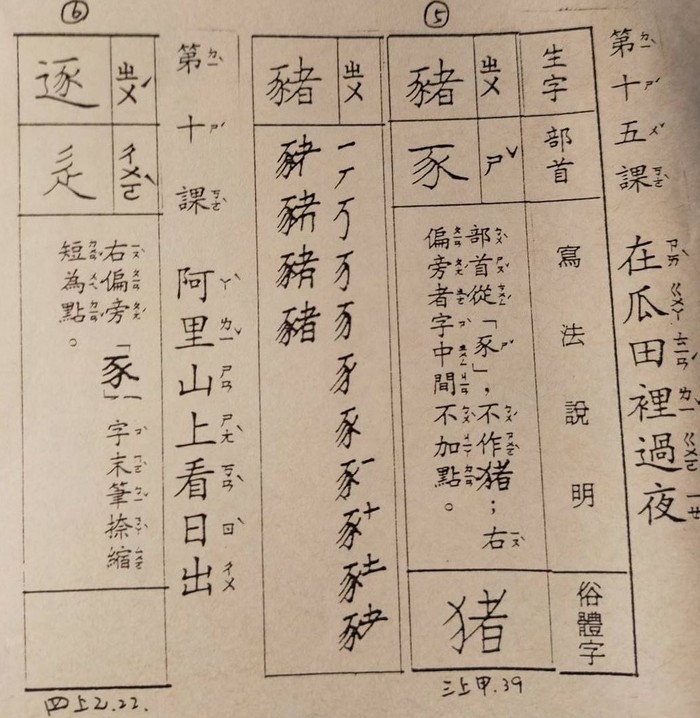 ⑤
第十五課 在瓜田裡過夜
生字
部首
寫法說明
俗體字
豬 ㄓㄨ
豕 ㄕˇ
部首從「豕」,不作猪;右
偏旁者字中間不加點。
猪
三上甲.39
豬 ㄓㄨ
豬
⑥
第十課 阿里山上看日出
逐 ㄓㄨˊ
辵 ㄔㄨㄛˋ
右偏旁「豖」字末筆捺縮
短為點。
四上乙.22.